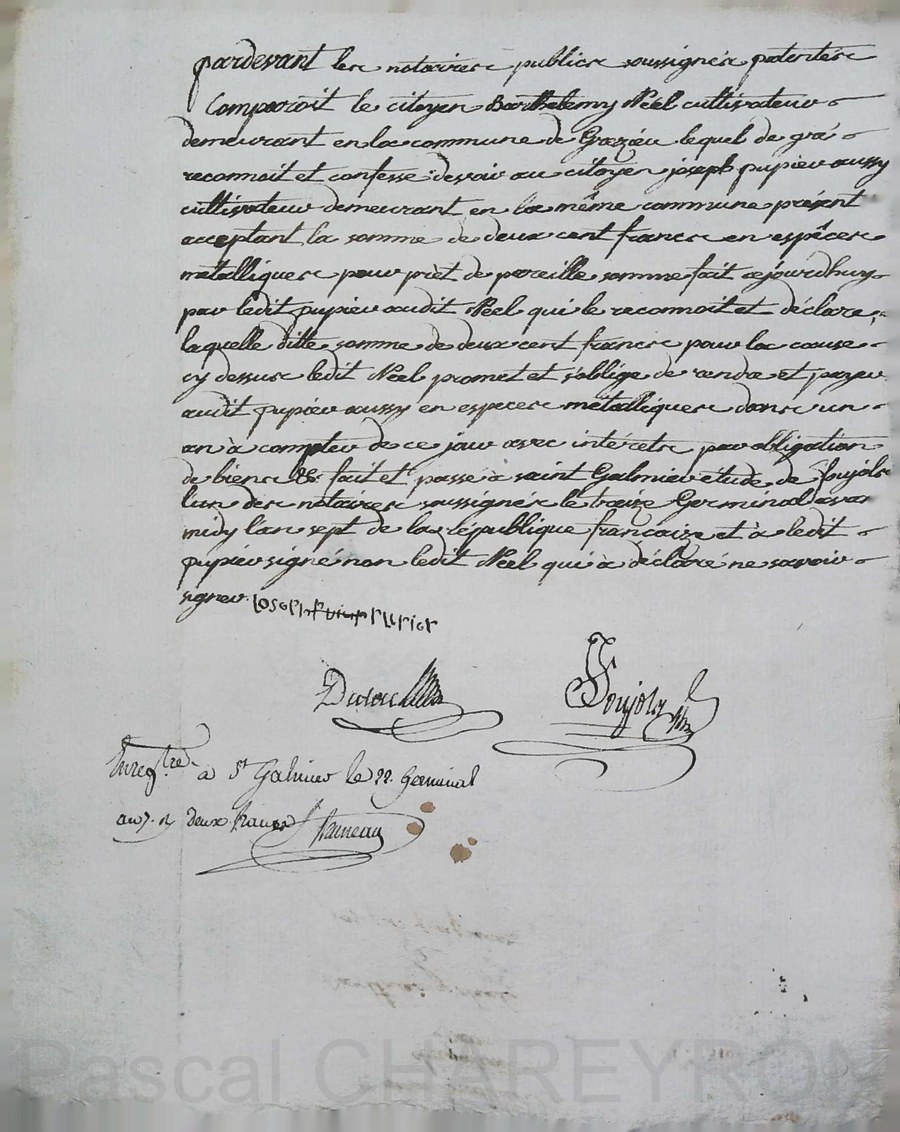 pardevant les notaires publics soussignés patentés
Comparoit le citoyen Barthelemy Néel cultivateur
demeurant en la commune de Grezieu lequel de gré
reconnoit et confesse devoir au citoyen joseph pupier aussy
cultivateur demeurant en la même commune présent
acceptant la somme de deux cent francs en espêces
métalliques pour prèt de pareille somme fait ajourdhuy
par ledit pupier audit Néel qui le reconnoit et déclare,
laquelle ditte somme de deux cent francs pour la cause
cy dessus ledit Néel promet et s'oblige de rendre et payer
audit pupier aussy en especes métalliques dans un
an à compter de ce jour avec intérets par obligation
de biens &c. fait et passé à saint Galmier étude de Soujols
lun des notaires soussignés le traize Germinal avant
midy l'an sept de la république francaize et à ledit
pupier signé non ledit Néel qui à déclaré ne savoir
signer. Joseph pupier
Soujols
Enregtré à St Galmier le 22. Germinal
an 7. R deux francs
Pascal CHAREYRON